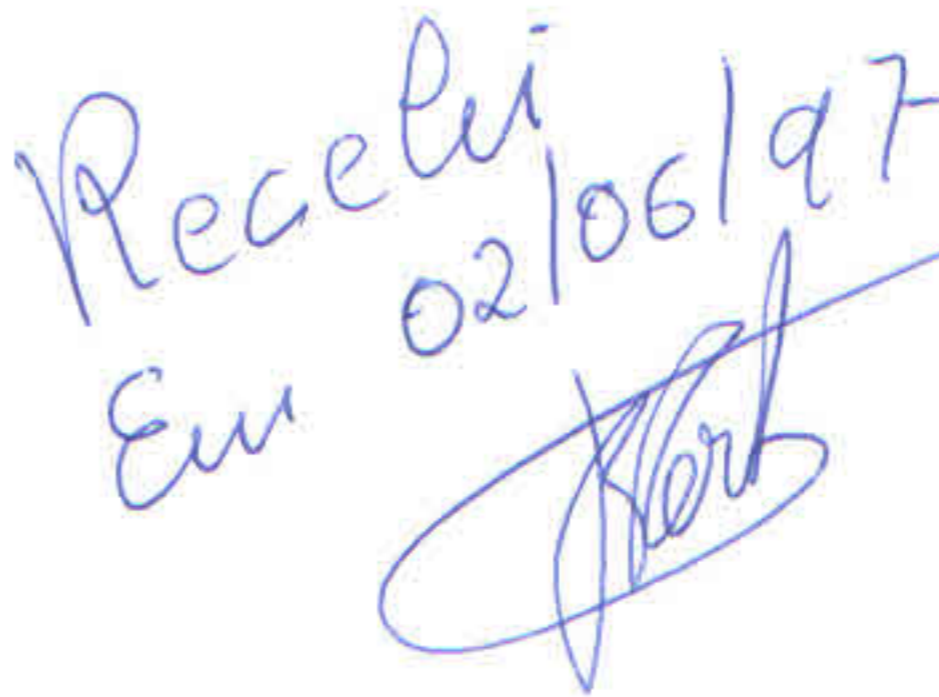 Recebi
Em 02/06/97